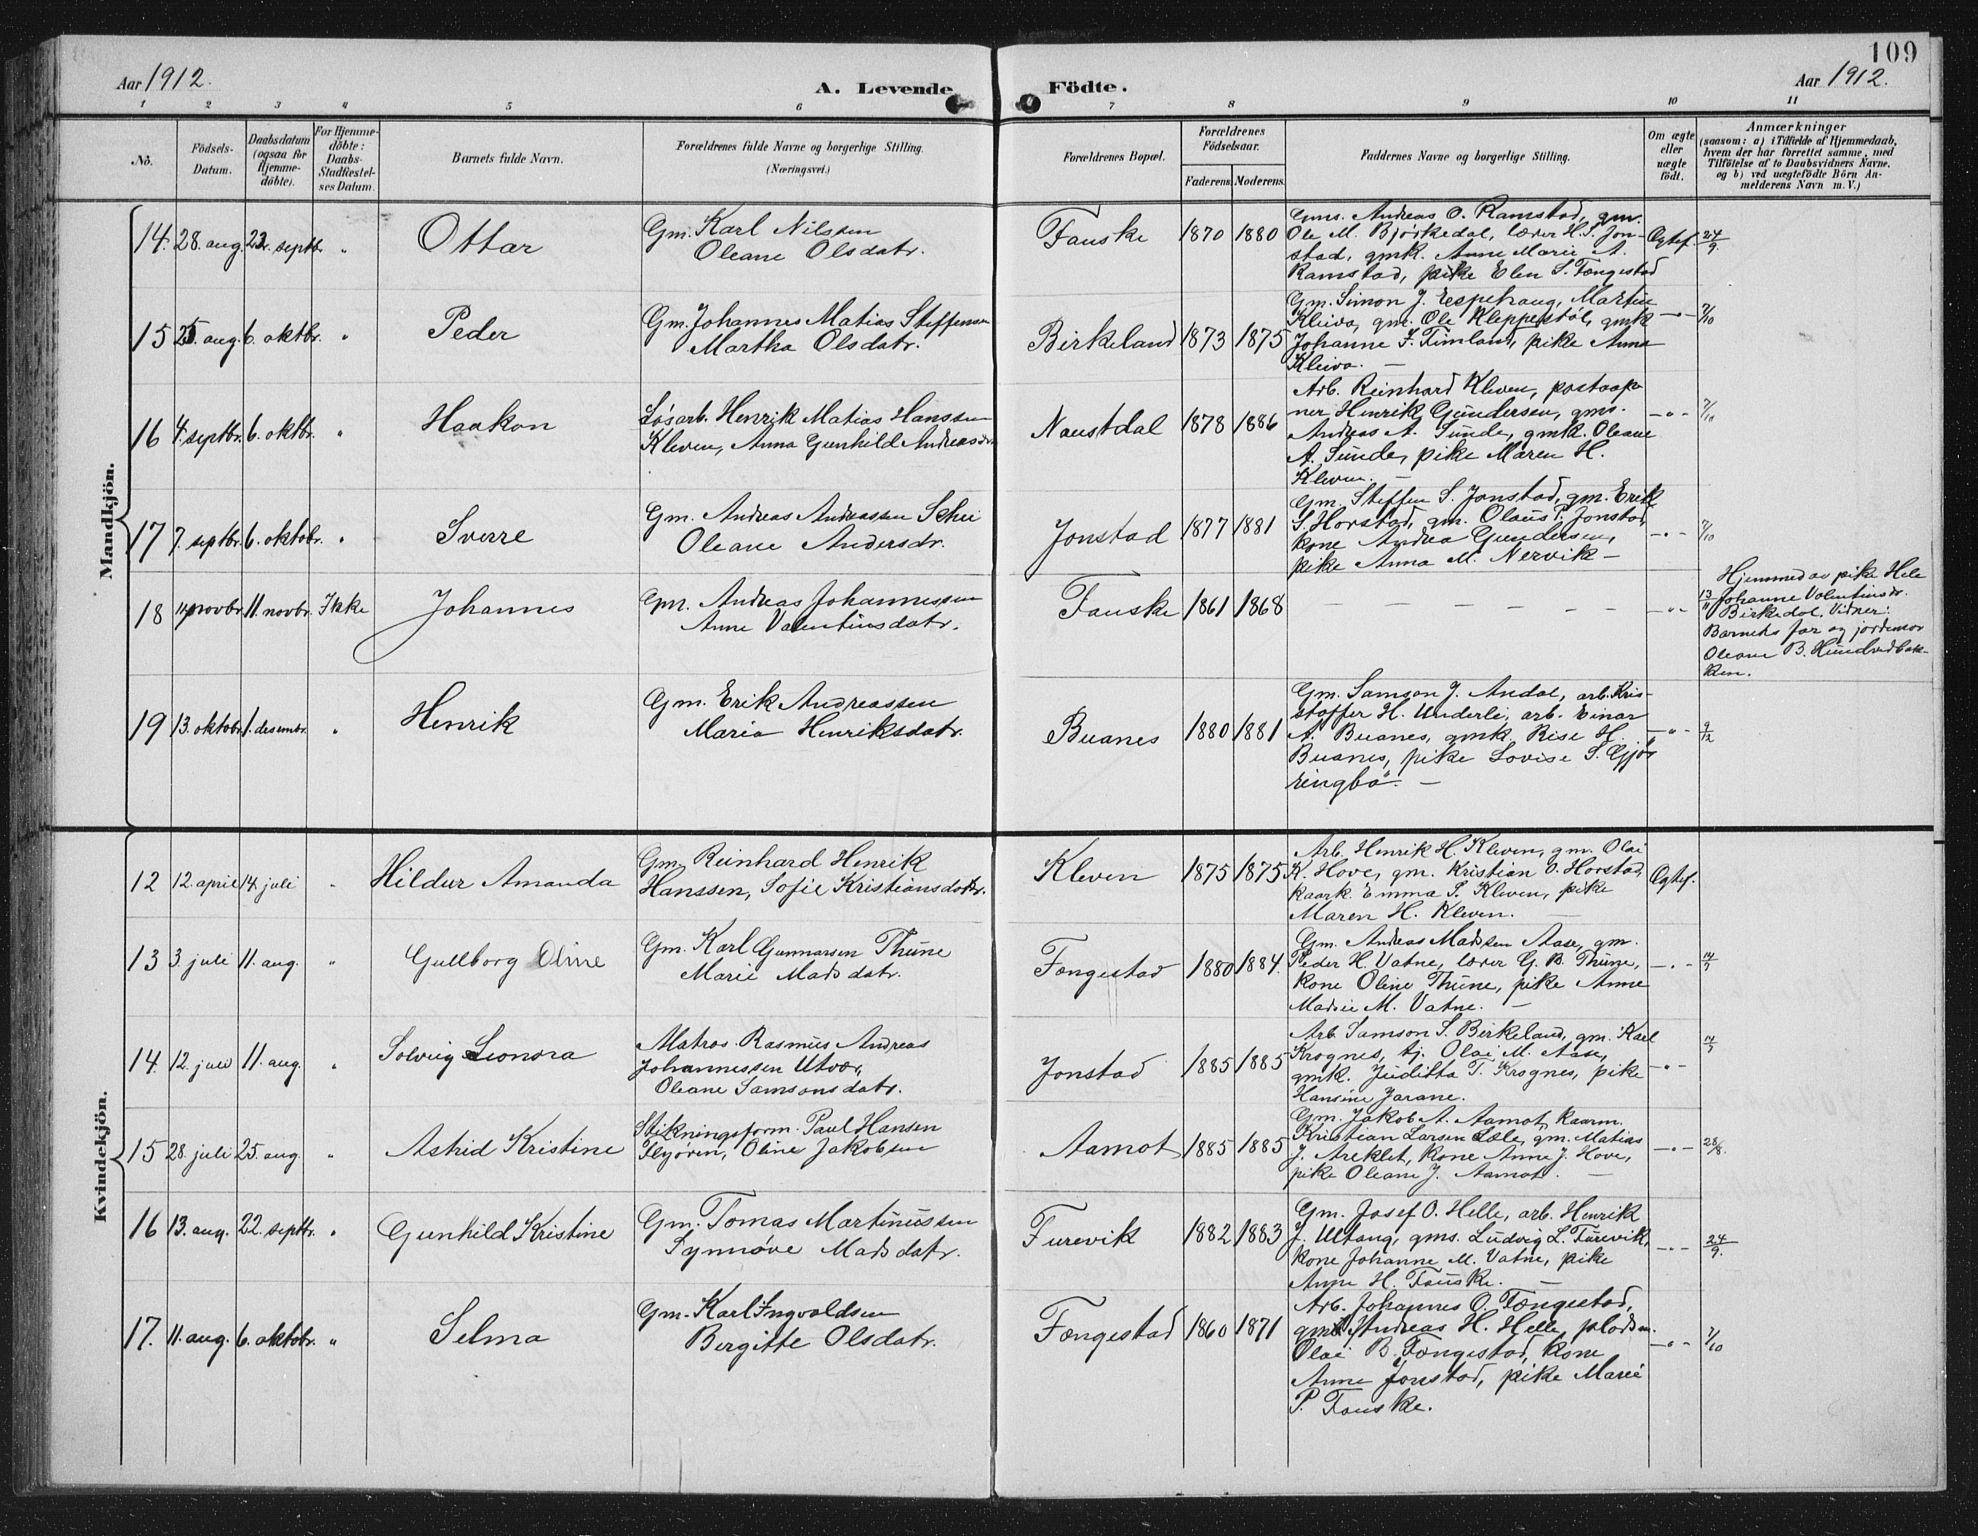 109
Aar 1912.
A. Levende Födte.
Aar 1912.
1 2 3 4 5 6 7 8 9 10 11
No.
Födsels-Datum.
Daabsdatum (ogsaa for Hjemme-döbte).
For Hjemme-döbte: Daabs-Stadfæstel-ses Datum.
Barnets fulde Navn.
Forældrenes fulde Navne og borgerlige Stilling.
(Næringsvei.)
Forældrenes Bopæl.
Forældrenes Födselsaar.
Faderens. Moderens.
Faddernes Navne og borgerlige Stilling.
Om ægte eller uægte födt.
Anmærkninger
(saasom: a) i Tilfælde af Hjemmedaab, hvem der har forrettet samme, med Tilföielse af to Daabsvidners Navne, og b) ved uægtefödte Börn An-melderens Navn m. V.)
Mandkjön.
14. 28. aug. 22. septbr. " Ottar
Gm. Karl Nilssen
Oleane Olsdatr.
Fauske 1870 1880
Gms. Andreas O. Ramstad, gm.
Ole M. Bjørkedal, lærer H. S. Jon-
stad, gmk. Anne Marie A.
Ramstad, pike Elen S. Fængestad
Egtef. 24/9.
15 25 aug. 6. oktbr. " Peder
Gm. Johannes Matias Steffensen
Martha Olsdatr.
Birkeland 1873 1875
Gm. Simon J. Espehaug, Martin
Kleiva, gm. Ole Kleppestøl, gmk
Johanne J. Timland, pike Anna
Kleiva. —
— " — 7/10
16 4. septbr. 6. oktbr. " Haakon
Løsarb. Henrik Matias Hanssen
Kleven, Anna Gunhild Andreasdr.
Naustdal 1878 1886
Arb. Reinhard Kleven, postaap-
ner Henrik Gundersen, gms.
Andreas A. Sunde, gmk. Oleane
A. Sunde, pike Maren H.
Kleven. —
— " — 7/10
17 7. septbr. 6. oktobr. " Sverre
Gm. Andreas Andreassen Schei
Oleane Andersdr.
Jonstad 1877 1881
Gm. Steffen S. Jonstad, gm. Erik
S. Horstad, gm. Olaus P. Jonstad,
kone Andrea Gundersen,
pike Anna M. Nervik —
— " — 7/10
18 11. novbr. 11. novbr. Ikke Johannes
Gm. Andreas Johannessen
Anne Valentinsdatr.
Fauske 1861 1868
— — — — — — —
— " — 13/11
Hjemmed av pike Hele
Johanne Valentinsdr.
Birkedal. Vidner:
Barnets far og jordemor
Oleane B. Hundvedbak-
ken.
19 13. oktobr. 1. desembr. " Henrik
Gm. Erik Andreassen
Maria Henriksdatr.
Buanes 1880 1881
Gm. Samson J. Andal, arb. Kris-
stoffer H. Underli, arb. Einar
A. Buanes, gmk. Rise H.
Buanes, pike Lovise S. Gjø-
ringbø. —
— " — 9/12
Kvindekjön.
12 12. april 14. juli " Hildur Amanda
Gm. Reinhard Henrik
Hanssen, Sofie Kristiansdotr.
Kleven 1875 1875
Arb. Henrik H. Kleven, gm. Olai
K. Hove, gm. Kristian O. Horstad,
kaark. Emma S. Kleven, pike
Maren H. Kleven. —
Egtef.
13 3. juli 11. aug. " Gullborg Oline
Gm. Karl Gunnarsen Thune
Marie Madsdatr.
Fængestad 1880 1884.
Gm. Andreas Madssen Aase, gm.
Peder H. Vatne, lærer G. B. Thune,
kone Oline Thune, pike Anne
Marie M. Vatne. —
— " —
14. 12. juli 11. aug. " Solveig Leonora
Matros Rasmus Andreas
Johannessen Utvær,
Oleane Samsonsdatr.
Jonstad 1885 1885
Arb. Samson S. Birkeland, gm. Karl
Krognes, tj. Olai M. Aase,
gmk. Juditta T. Krognes, pike
Hansine Jarane.
— " —
15 28. juli 25. aug. " Astrid Kristine
Stikningsform. Paul Hansen
Oline Jakobsen
Aamot 1885 1885
Gm. Jakob A. Aamot, kaarm.
Kristian Larsen Læle, gm. Matias
J. Areklet, kone Anne J. Hove,
pike Oleane J. Aamot. —
— " — 28/8.
16 13. aug. 22. septbr. " Gunhild Kristine
Gm. Tomas Martinussen
Synnøve Madsdatr.
Furevik 1882 1883
Gm. Josef O. Helle, arb. Henrik
J. Ultang, gms. Ludvig L. Furevik,
kone Johanne M. Vatne, pike
Anne H. Fauske. —
— " — 24/9.
17. 11. aug. 6. oktobr. " Selma
Gm. Karl Ingvaldsen
Bergitte Olsdatr.
Fængestad 1860 1871
Arb. Johannes O. Fængestad,
gms. Andreas H. Helle, pladsm.
Olai B. Fængestad, kone
Anne Jonstad, pike Marie
P. Fauske.
— " — 7/10